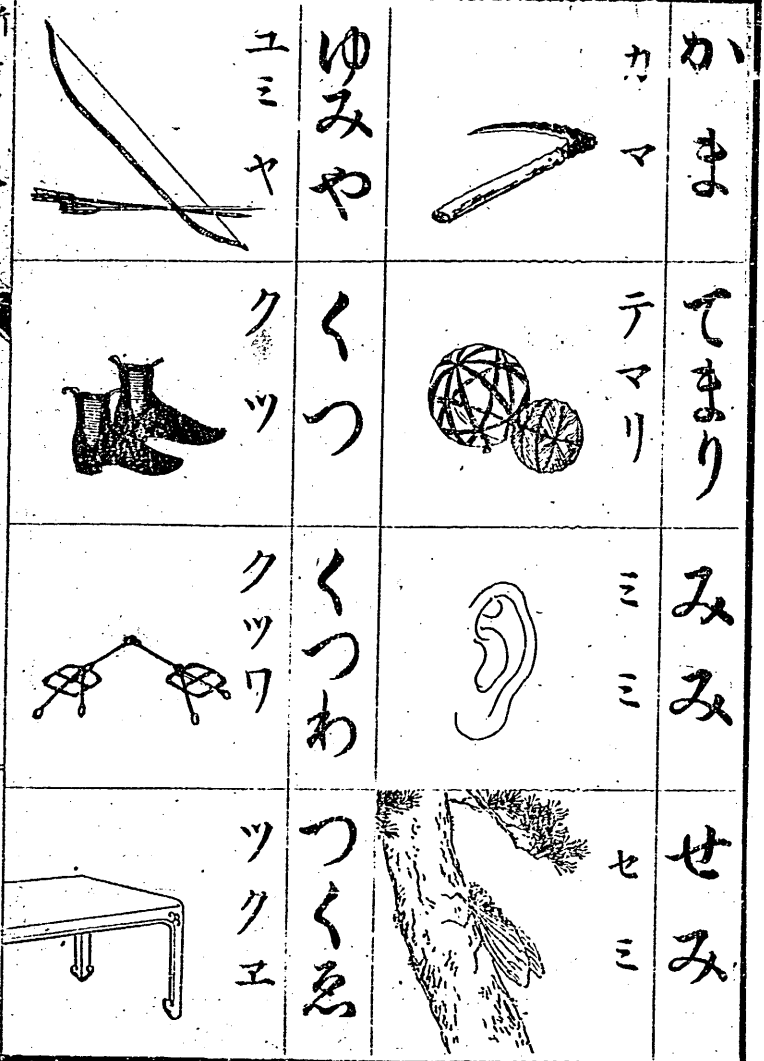 かま
カマ
てまり
テマリ
みみ
ミミ
せみ
セミ
ゆみや
ユミヤ
くつ
クツ
くつわ
クツワ
つくゑ
ツクヱ